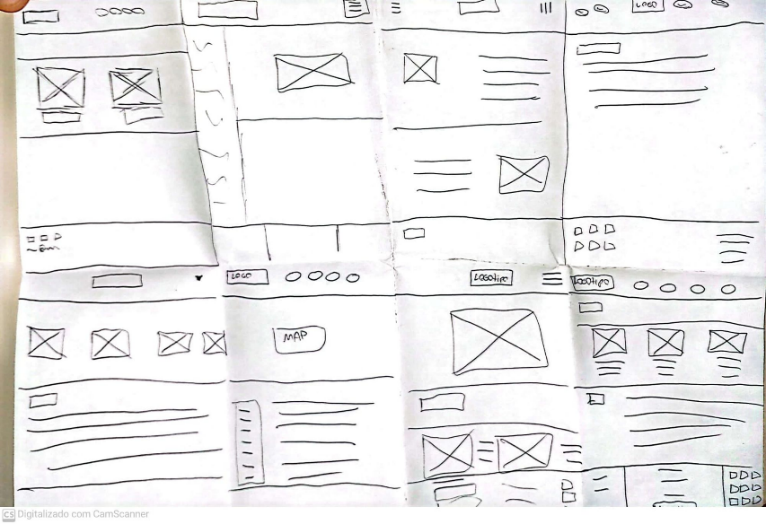 LOGO
LOGO
MAP
LOGOTIPO
LOGOTIPO
CS Digitalizado com CamScanner